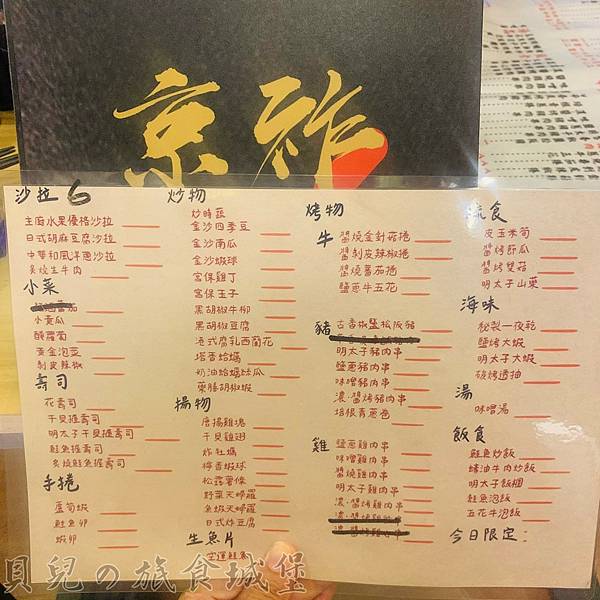 京祚
沙拉 6
主廚水果優格沙拉
日式胡麻豆腐沙拉
中華和風洋蔥沙拉
炙燒生牛肉
小菜
小黃瓜
醃蘿蔔
黃金泡菜
剝皮辣椒
壽司
花壽司
干貝握壽司
明太子干貝握壽司
鮭魚握壽司
炙燒鮭魚握壽司
手捲
蘆筍蝦
鮭魚卵
蝦卵
炒物
炒時蔬
金沙四季豆
金沙南瓜
金沙蝦球
宮保雞丁
宮保玉子
黑胡椒牛柳
黑胡椒豆腐
港式腐乳西蘭花
塔香蛤蠣
奶油蛤蠣絲瓜
藥膳胡椒蝦
揚物
唐揚雞塊
干貝雞翅
炸牡蠣
檸香蝦球
松露薯條
野菜天婦羅
魚蝦天婦羅
日式炸豆腐
生魚片
空運鮭魚
烤物
牛
醬燒金針菇捲
醬剝皮辣椒捲
醬燒番茄捲
鹽蔥牛五花
豬
古香椒鹽松阪豬
明太子豬肉串
鹽蔥豬肉串
味噌豬肉串
濃醬烤豬肉串
培根青蔥卷
雞
鹽蔥雞肉串
味噌雞肉串
醬燒雞肉串
明太子雞肉串
濃醬烤雞肉串
蔬食
皮玉米筍
醬烤節瓜
醬烤雙菇
明太子山藥
海味
秘製一夜乾
鹽烤大蝦
明太子大蝦
碳烤透抽
湯
味噌湯
飯食
鮭魚炒飯
蠔油牛肉炒飯
明太子飯糰
鮭魚泡飯
五花牛泡飯
今日限定：
貝兒の旅食城堡